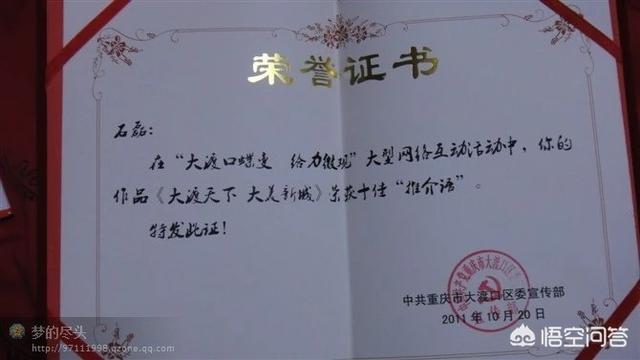 荣誉证书
石磊：
在“大渡口蝶变 给力微观”大型网络互动活动中，你的
作品《大渡天下 大美新城》荣获十佳“推介语”。
特发此证！
中共重庆市大渡口区委宣传部
2011年10月20日
梦的尽头
http://97111998.qzone.qq.com
悟空问答